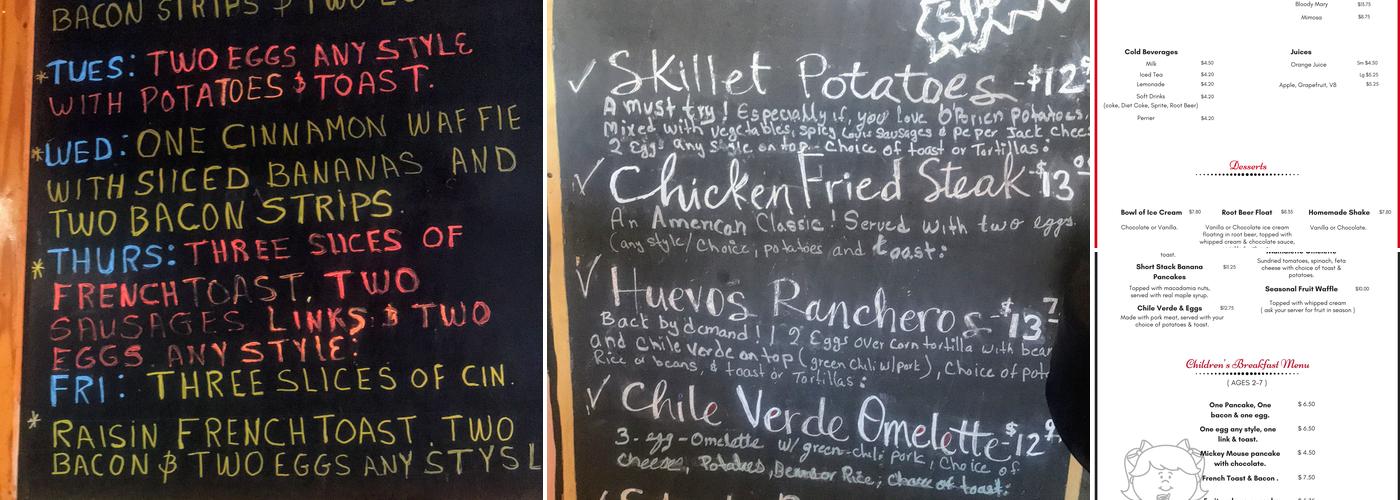 BACON STRIPS & TWO
TUES: TWO EGGS ANY STYLE
WITH POTATOES & TOAST.
WED: ONE CINNAMON WAFFIE
WITH SlICED BANANAS AND
TWO BACON STRIPS.
THURS: THREE SLICES OF
FRENCH TOAST, TWO
SAUSAGES LINKS & TWO
EGGS ANY STYLE.
FRI: THREE SLICES OF CIN.
RAISIN FRENCH TOAST. TWO
BACON & TWO EGGS ANY STYSL
Skillet Potatoes -$12
A must try! Especially if, you love O'Brien potatoes,
Mixed with vegetables, spicy Louis Sausages & Peper Jack chees
2 Eggs any Style on top. Choice of toast or Tortillas:
Chicken Fried Steak $13
An American Classic! Served with two eggs.
(any style/choice, potatoes and toast:
Huevos Rancheros -$13.7
Back by demand!! 2 Eggs over corn tortilla with bean
and Chile verde on top (green chili w/pork), Choice of pot
Rice or beans, & toast or Tortillas:
Chile Verde Omelette -$12.9
3-egg-Omelette w/green-chili pork, Choice of
cheese, Potatoes, Beans or Rice; choice of toast:
Bloody Mary $13.75
Mimosa $8.75
Cold Beverages
Milk $4.50
Iced Tea $4.20
Lemonade $4.20
Soft Drinks $4.20
(coke, Diet Coke, Sprite, Root Beer)
Perrier $4.20
Juices
Orange Juice Sm $4.50
Lg $5.25
Apple, Grapefruit, V8 $5.25
Desserts
Bowl of Ice Cream $7.80
Chocolate or Vanilla.
Root Beer Float $8.55
Vanilla or Chocolate ice cream
floating in root beer, topped with
whipped cream & chocolate sauce,
Homemade Shake $7.80
Vanilla or Chocolate.
toast.
Short Stack Banana $11.25
Pancakes
Topped with macadamia nuts,
served with real maple syrup.
Chile Verde & Eggs $12.75
Made with pork meat, served with your
choice of potatoes & toast.
Omelette
Sundried tomatoes, spinach, feta
cheese with choice of toast &
potatoes.
Seasonal Fruit Waffle $10.00
Topped with whipped cream
( ask your server for fruit in season )
Children's Breakfast Menu
( AGES 2-7 )
One Pancake, One $ 6.50
bacon & one egg.
One egg any style, one $ 6.50
link & toast.
Mickey Mouse pancake $ 4.50
with chocolate.
French Toast & Bacon . $ 7.50